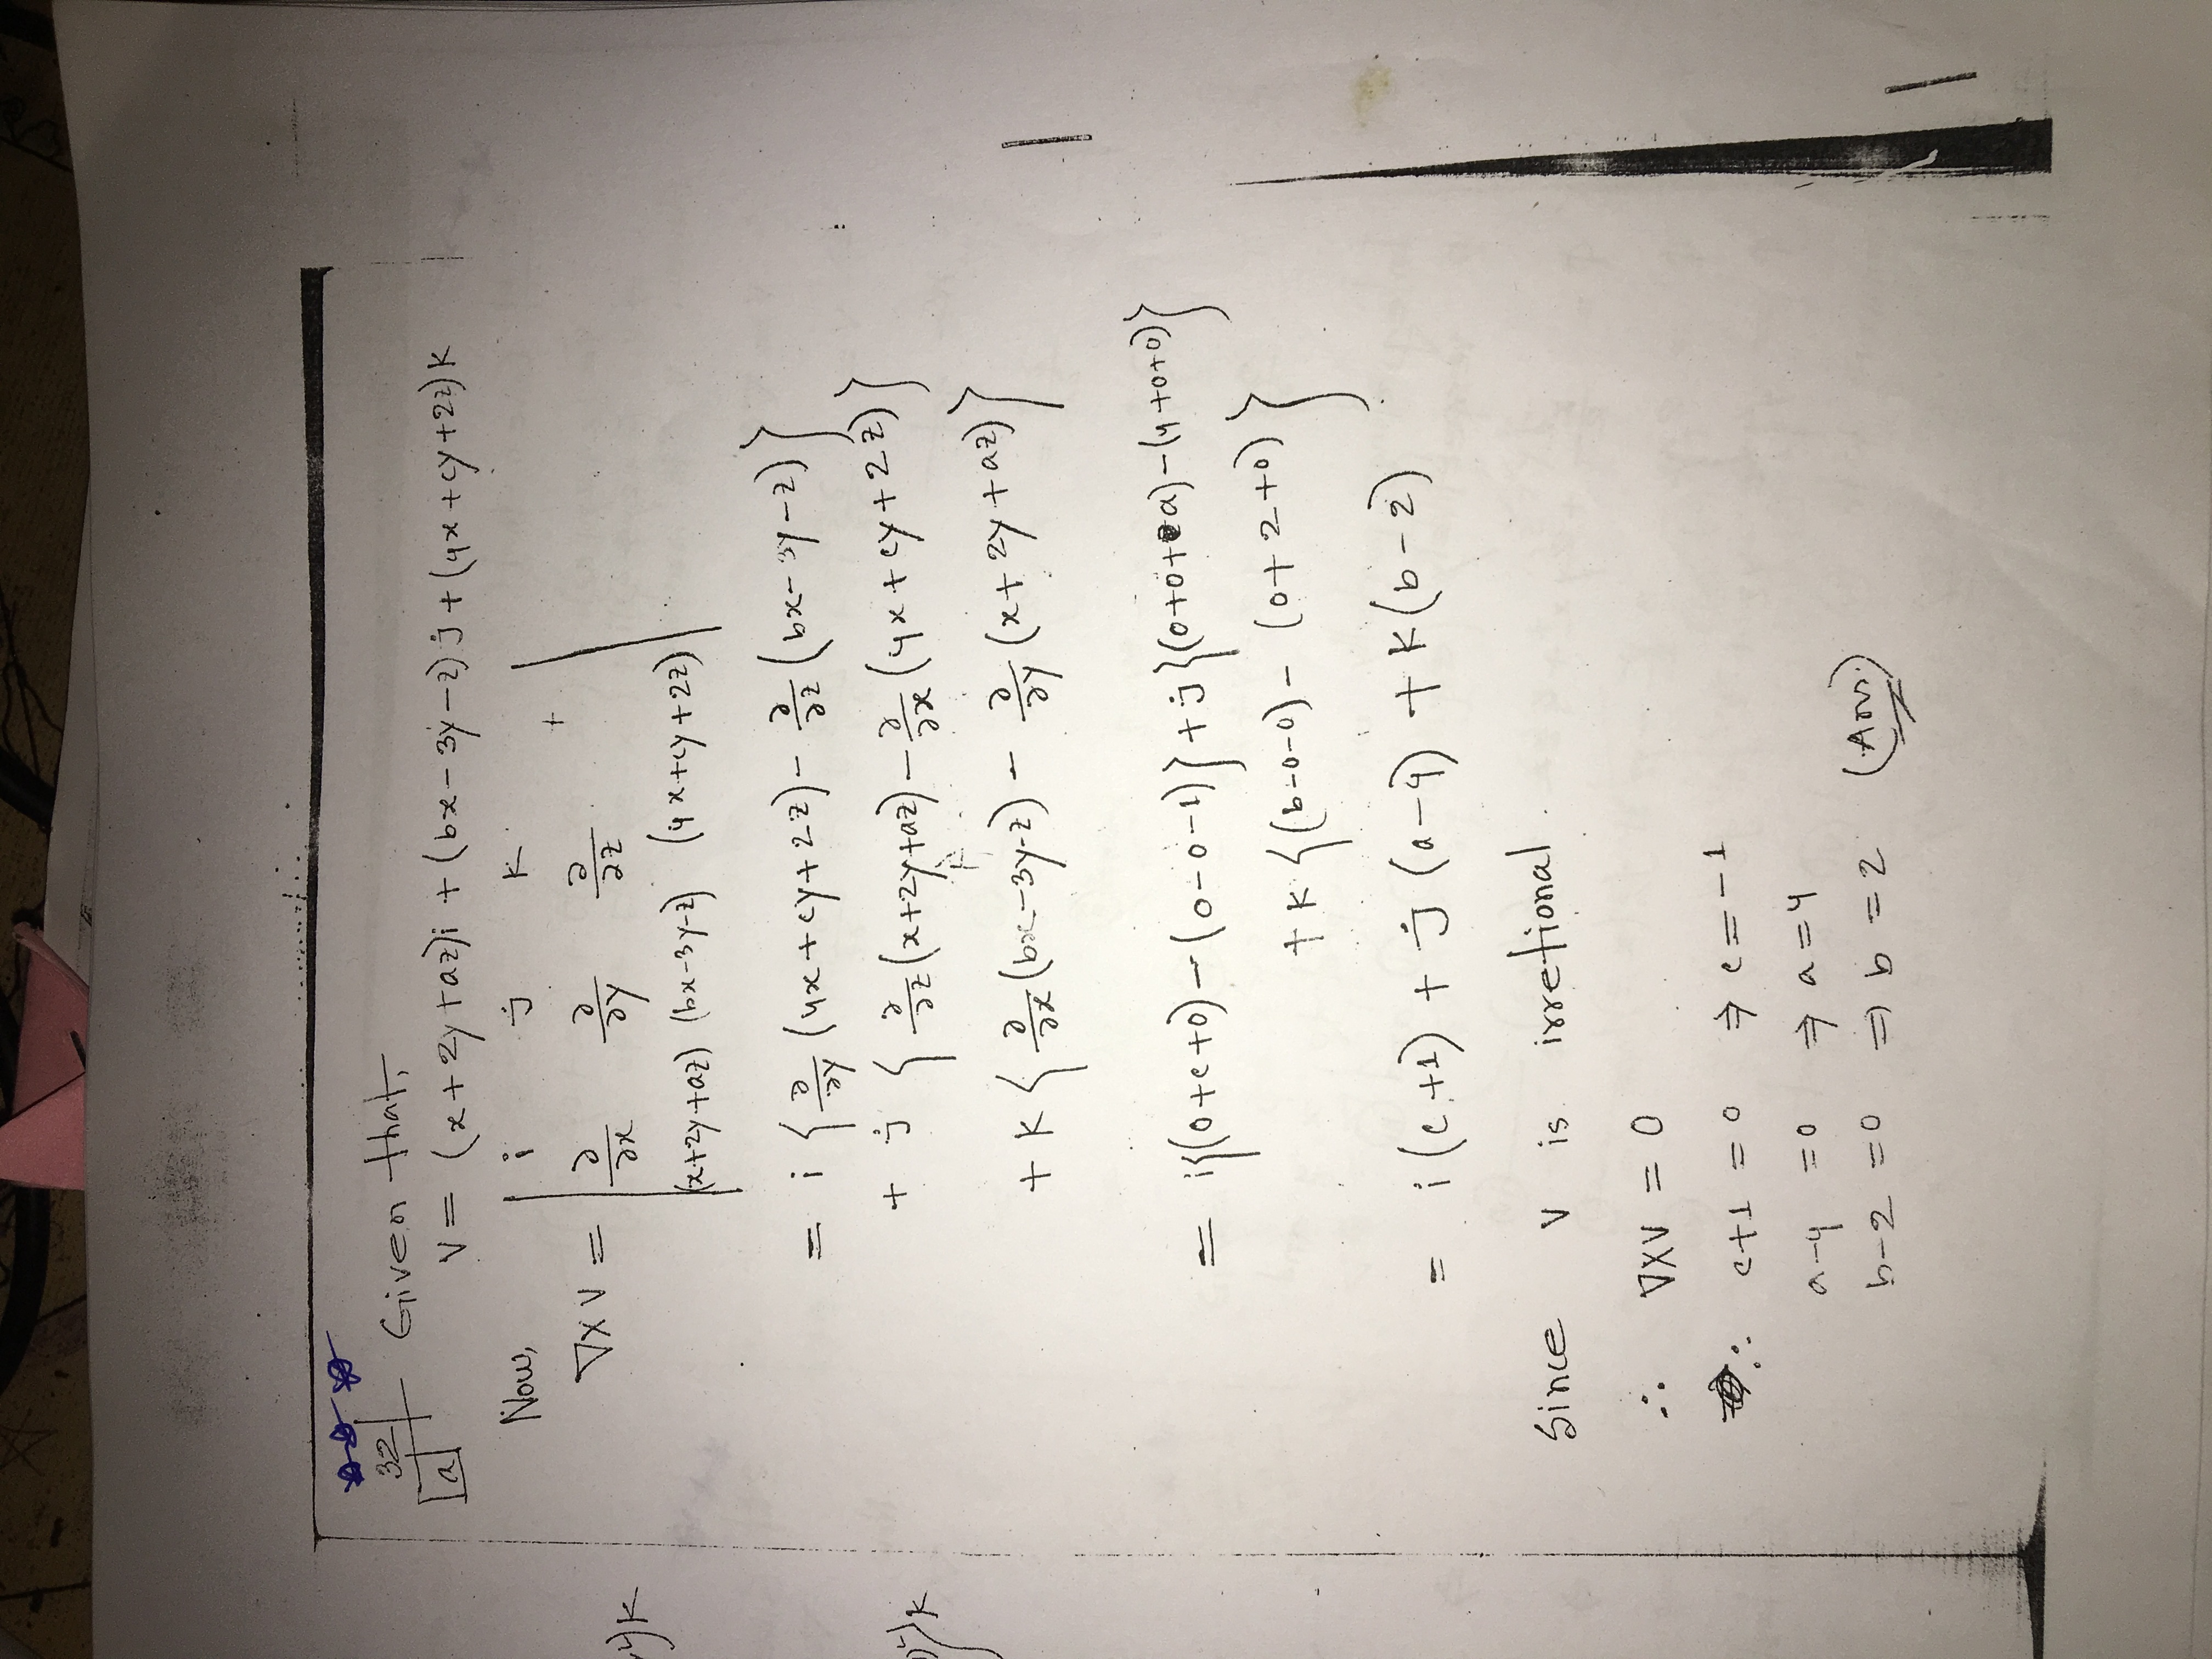 32
a
Given that,
V = (x+2y+az)i + (bx-3y-z)j + (4x+cy+2z)k
Now,
i j k
∇×V = ∂/∂x ∂/∂y ∂/∂z
(x+2y+az) (bx-3y-z) (4x+cy+2z)
= i {∂/∂y (4x+cy+2z) - ∂/∂z (bx-3y-z)}
+ j {∂/∂z (x+2y+az) - ∂/∂x (4x+cy+2z)}
+ k {∂/∂x (bx-3y-z) - ∂/∂y (x+2y+az)}
= i{(0+c+0)-(0-0-1)} + j{(0+0+a)-(4+0+0)}
+ k {(b-0-0) - (0+2+0)}
= i(c+1) + j(a-4) + k(b-2)
Since V is irretional.
∴ ∇×V = 0
∴ c+1 = 0 ⇒ c = -1
a-4 = 0 ⇒ a = 4
b-2 = 0 ⇒ b = 2 (Ans.)